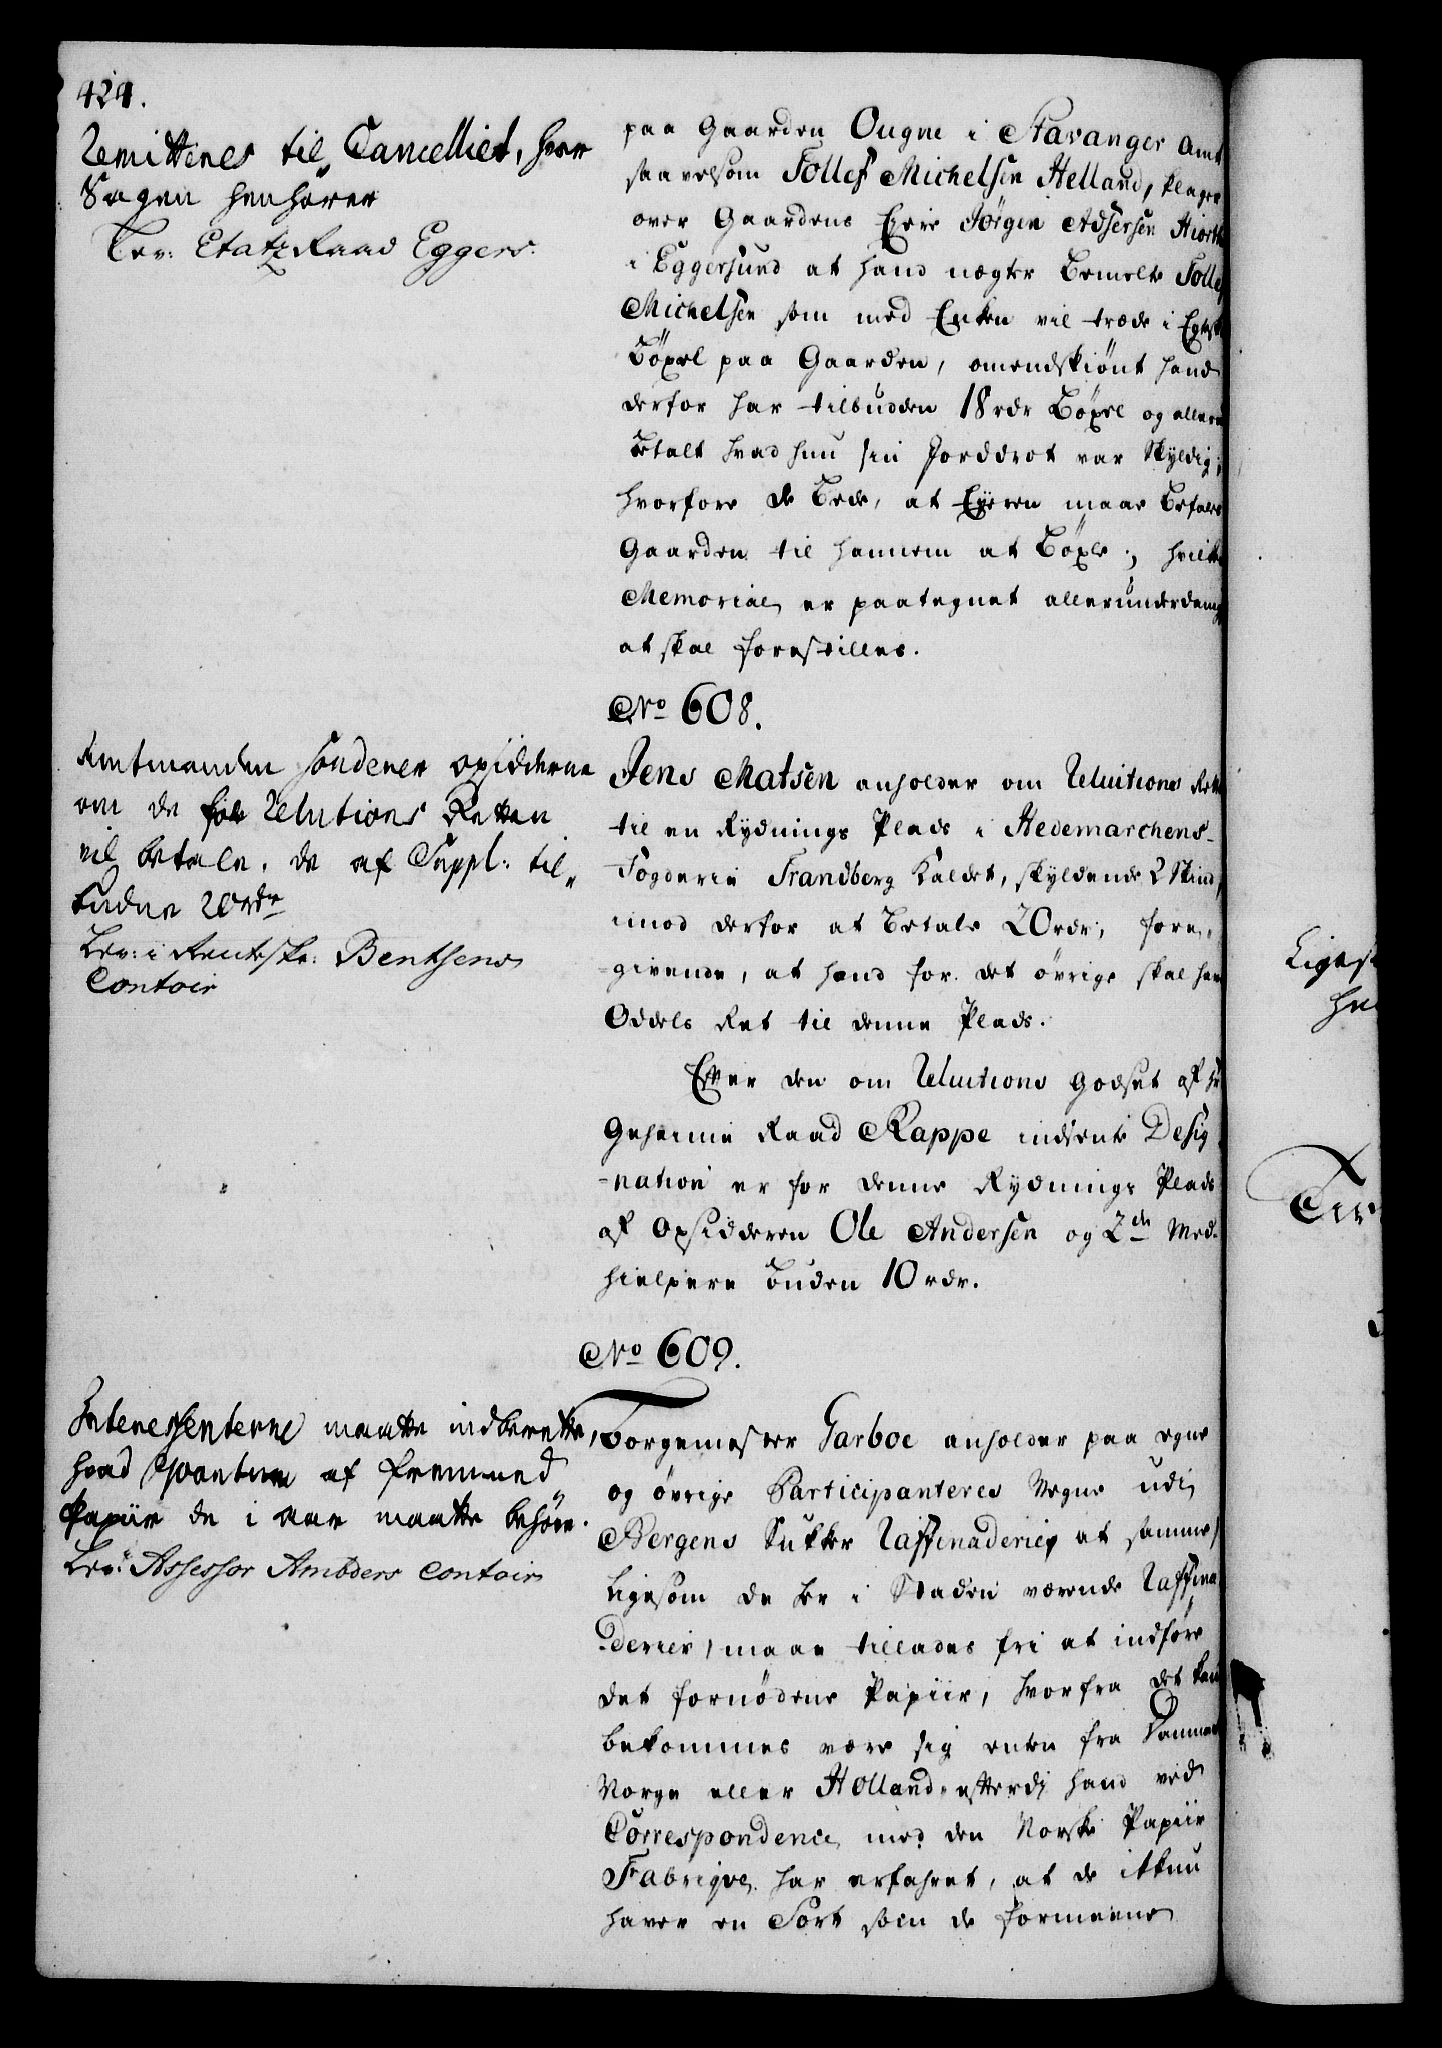 424.
Remitteres til Cancelliet, hvor
Sagen henhører
Lev: Etatz Raad Eggers.
paa Gaarden Ougne i Stavanger Amt
saavelsom Tollef Michelsen Helland, klager
over Gaardens Eyere Jørgen Adsersen Hiorth
i Eggersund at hand nægter bemelte Tollef
Michelsen som med Enken vil træde i Egtesk
Böxel paa Gaarden, omendskiønt hand
derfor har tilbudden 18 rdr Böxel og allere
betalt hvad hun sin Jorddrot var skyldig;
hvorfore de bede, at Eyeren maae befales
Gaarden til hannem at böxle; hvilke
Memorial er paategnet allerunderdanigst
at skal forestilles.
No 608.
Amtmanden fordener opsidderne
om de for Relutions Retten
vil betale de af Suppl: til-
budne 20 rdr
Lev: i Rentesk: Bentsens
Contoir
Jens Matsen anholder om Reluitions Rett
til en Rydnings Plads i Hedemarchens-
Fogderie Strandberg kaldet, skyldende 2 Skind,
imod derfor at betale 20 rdr; fore-
-givende, at hand for det øvrige skal have
Oddels Ret til denne Plads.
Efter den om Reluitions Godset af Hr
Geheime Raad Rappe indsente Desig-
-nation er for denne Rydnings Plads
af Opsidderen Ole Andersen og 2de Med-
hielpere buden 10 rdr.
No 609.
Interessenterne maatte indberette,
hvad Qvantum af fremmed
Papiir de i Aar maatte behöve.
Lev: Assessor Ambders Contoir
Borgemester Garboe anholder paa egne
og øvrige Participanteres Vegne udi
Bergens Sukker Raffinaderie, at samme,
ligesom de her i Staden værende Raffina
-derier, maae tillades frit at indføre
det fornødene Papiir, hvorfra det kand
bekommes være sig enten fra Danmark
Norge eller Holland, efterdi hand ved
Correspondence med den Norske Papiir
Fabriqve har erfahret, at de ikkun
haver en Sort som de formeene
Ligesaa